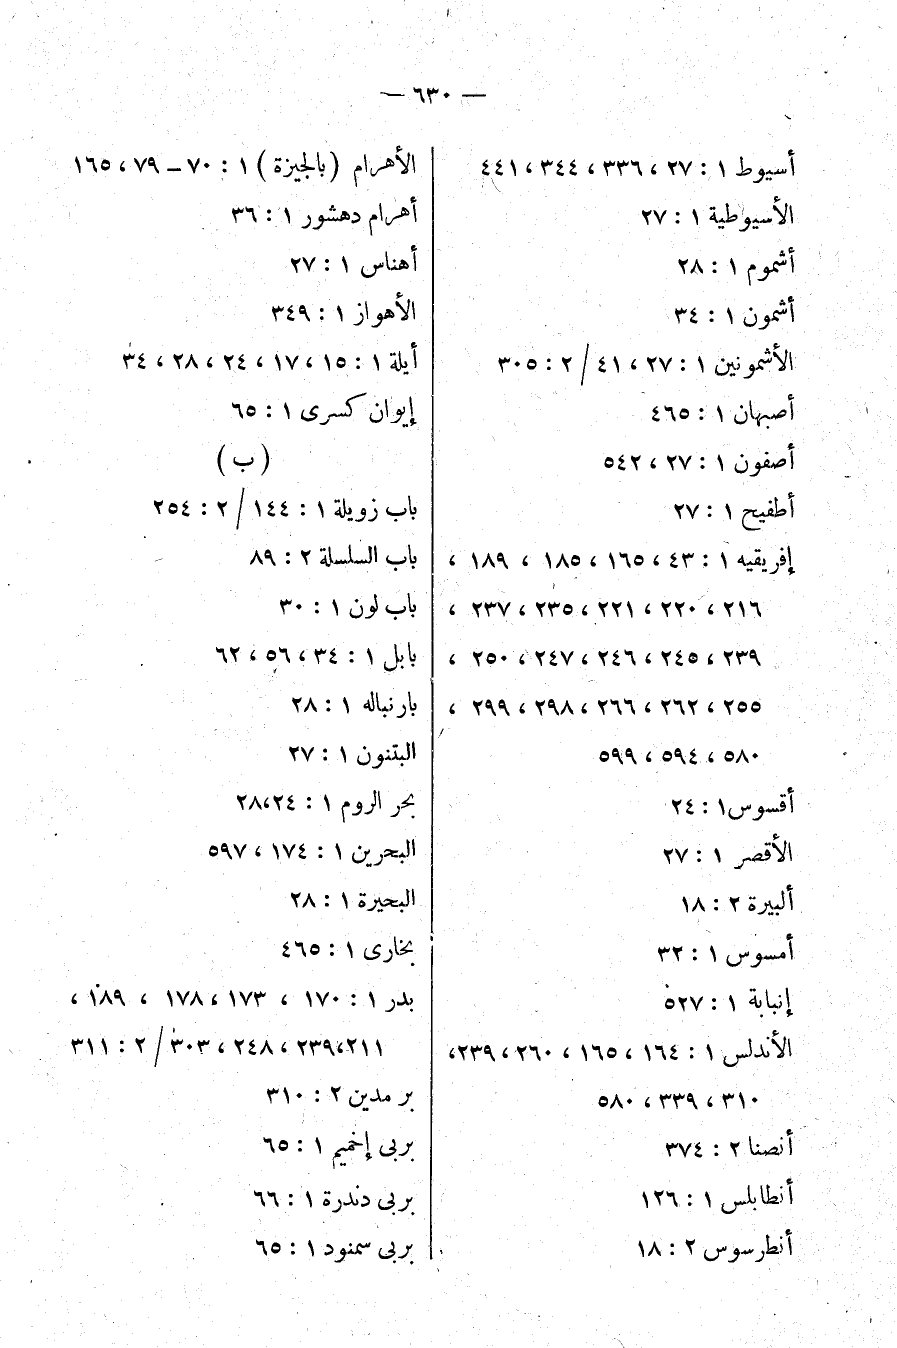 — ٦٣٠ —
أسيوط ١ : ٢٧ ، ٣٣٦ ، ٣٤٤ ، ٤٤١
الأسيوطية ١ : ٢٧
أشموم ١ : ٢٨
أشمون ١ : ٣٤
الأشمونين ١ : ٢٧ ، ٤١ / ٢ : ٣٠٥
أصبهان ١ : ٤٦٥
أصفون ١ : ٢٧ ، ٥٤٢
أطفيح ١ : ٢٧
إفريقيه ١ : ٤٣ ، ١٦٥ ، ١٨٥ ، ١٨٩ ،
٢١٦ ، ٢٢٠ ، ٢٢١ ، ٢٣٥ ، ٢٣٧ ،
٢٣٩ ، ٢٤٥ ، ٢٤٦ ، ٢٤٧ ، ٢٥٠ ،
٢٥٥ ، ٢٦٢ ، ٢٦٦ ، ٢٩٨ ، ٢٩٩ ،
٥٨٠ ، ٥٩٤ ، ٥٩٩
أقسوس ١ : ٢٤
الأقصر ١ : ٢٧
ألبيرة ٢ : ١٨
أمسوس ١ : ٣٢
إنبابة ١ : ٥٢٧
الأندلس ١ : ١٦٤ ، ١٦٥ ، ٢٦٠ ، ٢٣٩ ،
٣١٠ ، ٣٣٩ ، ٥٨٠
أنصنا ٢ : ٣٧٤
أنطابلس ١ : ١٢٦
أنطرسوس ٢ : ١٨
الأهرام (بالجيزة) ١ : ٧٠ – ٧٩ ، ١٦٥
أهرام دهشور ١ : ٣٦
أهناس ١ : ٢٧
الأهواز ١ : ٣٤٩
أيلة ١ : ١٥ ، ١٧ ، ٢٤ ، ٢٨ ، ٣٤
إيوان كسرى ١ : ٦٥
(ب)
باب زويلة ١ : ١٤٤ / ٢ : ٢٥٤
باب السلسلة ٢ : ٨٩
باب لون ١ : ٣٠
بابل ١ : ٣٤ ، ٥٦ ، ٦٢
بارنباله ١ : ٢٨
البتنون ١ : ٢٧
بحر الروم ١ : ٢٤ ، ٢٨
البحرين ١ : ١٧٤ ، ٥٩٧
البحيرة ١ : ٢٨
بخارى ١ : ٤٦٥
بدر ١ : ١٧٠ ، ١٧٣ ، ١٧٨ ، ١٨٩ ،
٢١١ ، ٢٣٩ ، ٢٤٨ ، ٣٠٣ / ٢ : ٣١١
بر مدين ٢ : ٣١٠
بربى إخميم ١ : ٦٥
بربى دندرة ١ : ٦٦
بربى سمنود ١ : ٦٥